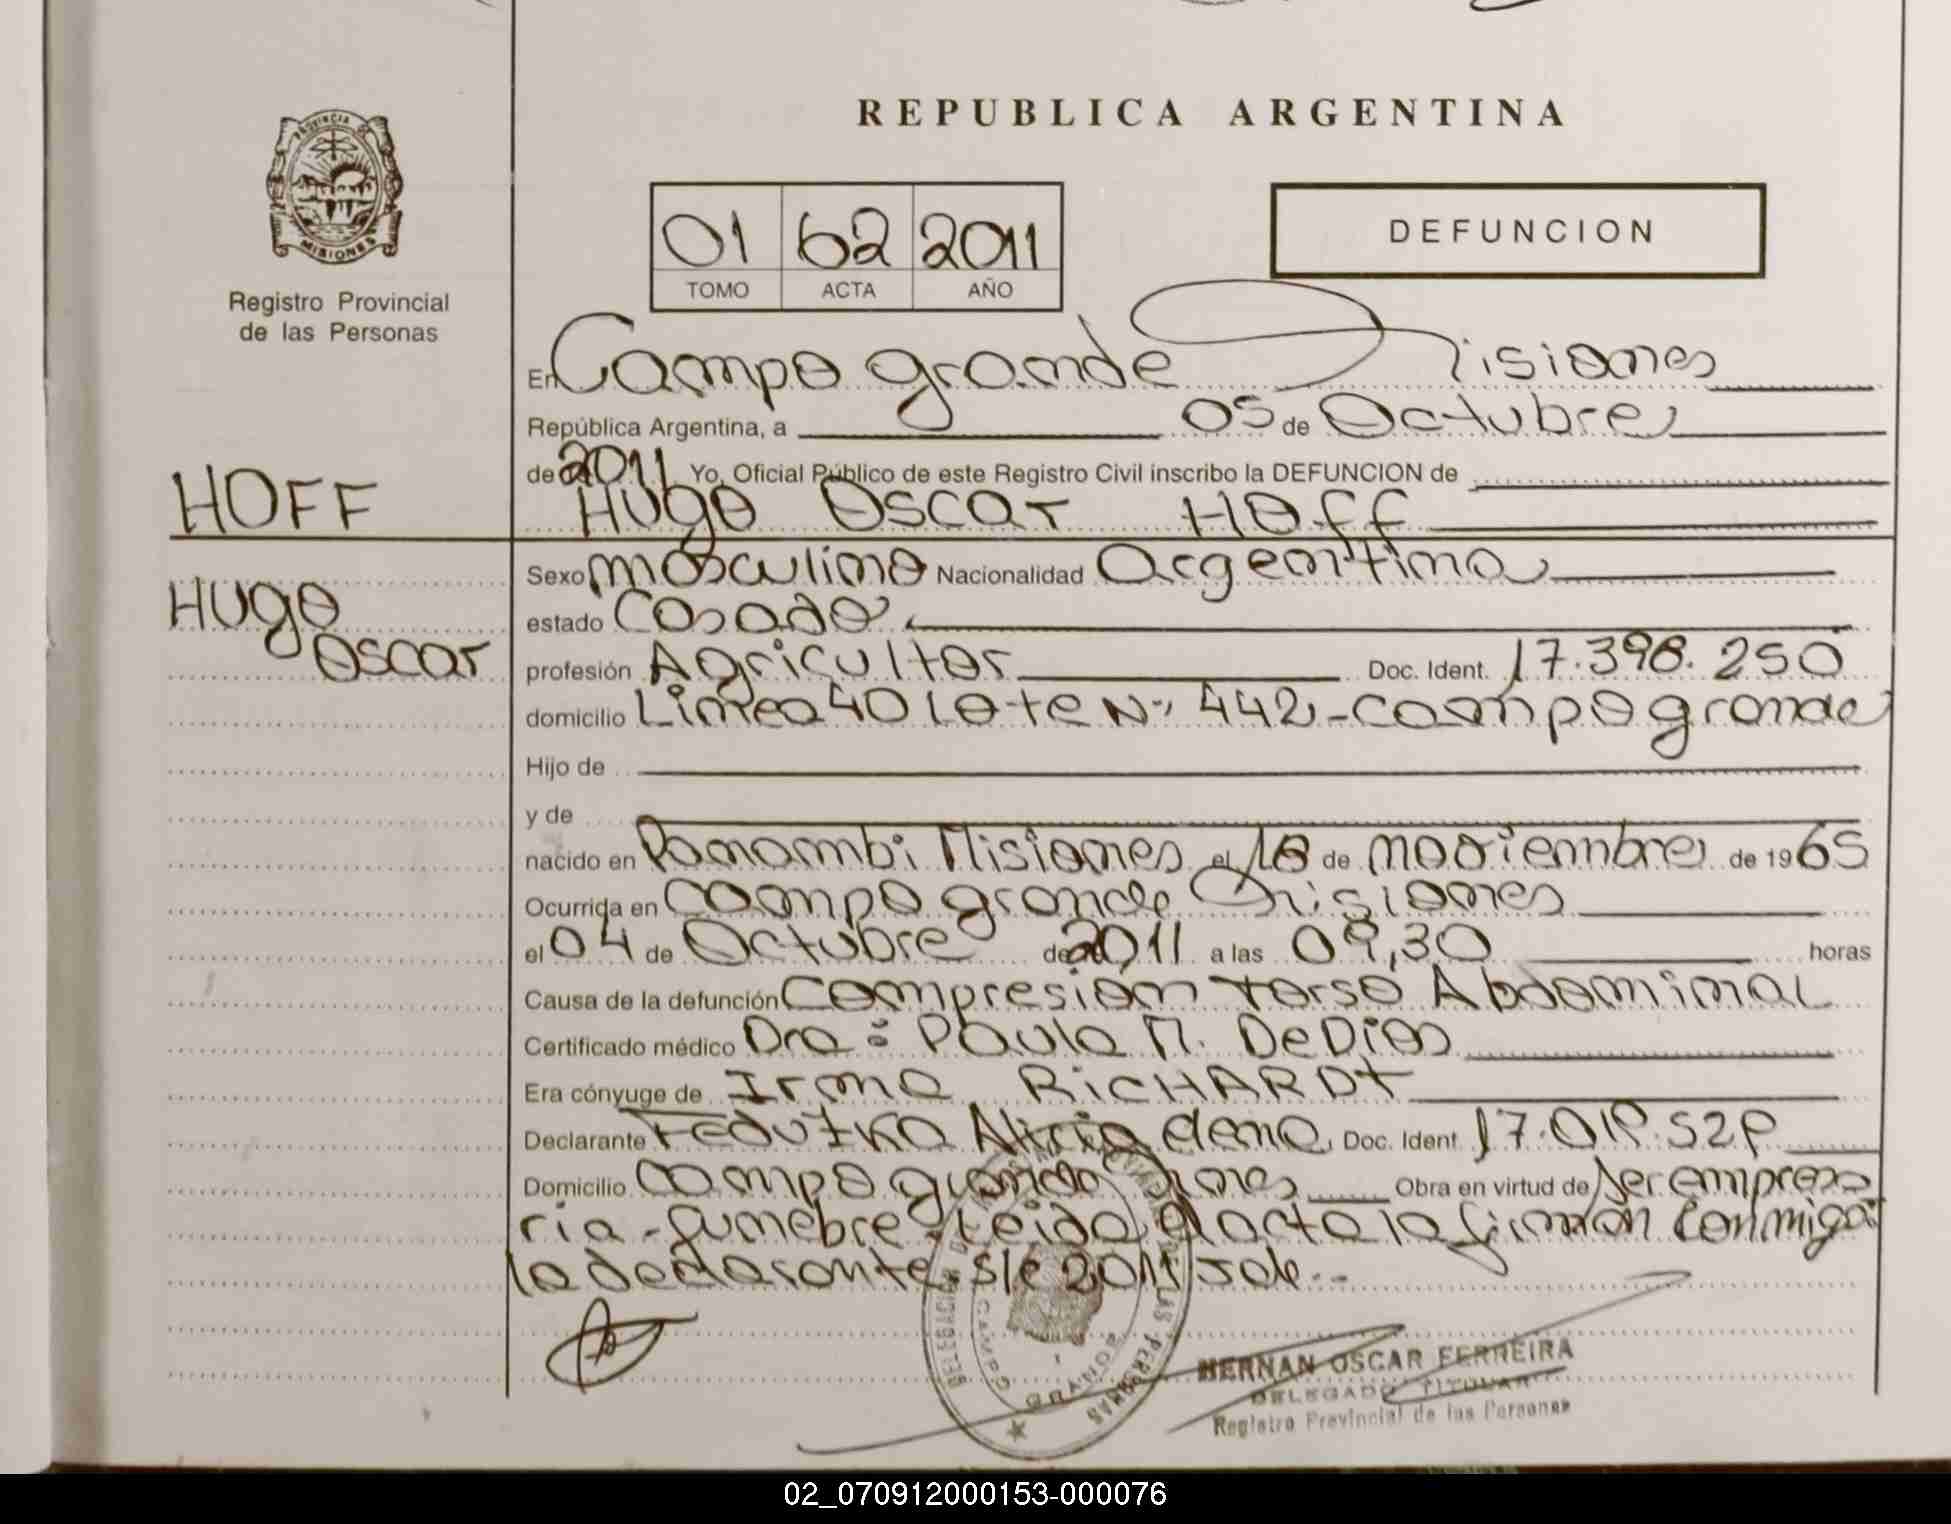 REPUBLICA ARGENTINA
PROVINCIA DE
MISIONES
Registro Provincial
de las Personas
01 62 2011
TOMO ACTA AÑO
DEFUNCION
En Campo grande Misiones
República Argentina, a 05 de Octubre
de 2011 Yo, Oficial Público de este Registro Civil inscribo la DEFUNCION de
HOFF
Hugo Oscar Hoff
Sexo masculino Nacionalidad Argentina
Hugo
Oscar
estado Casado
profesión Agricultor Doc. Ident. 17.398.250
domicilio Linea 40 Lote Nº 442 - Campo grande
Hijo de
y de
nacido en Panambi Misiones el 18 de noviembre de 1965
Ocurrida en Campo grande Misiones
el 04 de Octubre de 2011 a las 09,30 horas
Causa de la defunción Compresión torso Abdominal
Certificado médico Dra: Paula M. De Dios
Era cónyuge de Irma RICHARDT
Declarante Alicia Elena Doc. Ident.
Domicilio Campo grande Mnes Obra en virtud de ser empresa
ria - funebre. Leida el acta la firman conmigo
la declarante. s/e 2011 vale.-
DELEGACION DE LAS PERSONAS
CAMPO GRANDE
HERNAN OSCAR FERREIRA
DELEGADO TITULAR
Registro Provincial de las Personas
02_070912000153-000076